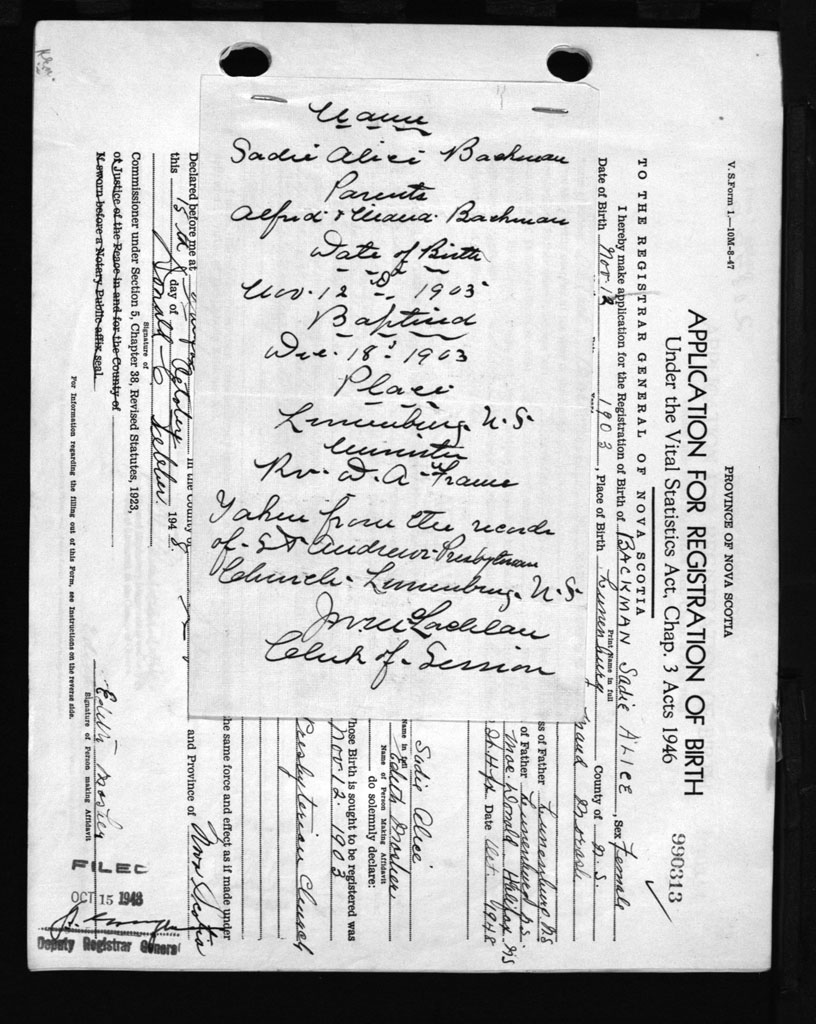 Name
Sadie Alice Backman
Parents
Alfred & Maud Backman
Date of Birth
Nov. 12 1903
Baptised
Dec. 18 1903
Place
Lunenburg N.S.
Minister
Rev. D. A. Frame
Taken from the records
of St Andrews Presbyterian
Church Lunenburg, N.S.
McLachlan
Clerk of Session
V. S. Form 1.—10M-8-47
PROVINCE OF NOVA SCOTIA
APPLICATION FOR REGISTRATION OF BIRTH
Under the Vital Statistics Act, Chap. 3 Acts 1946
990313
TO THE REGISTRAR GENERAL OF NOVA SCOTIA
I hereby make application for the Registration of Birth of BACKMAN Sadie ALICE, Sex Female
Print Name in full
Date of Birth Nov. 12 1903, Place of Birth Lunenburg County of N.S.
ss of Father Lunenburg N.S
of Father Lunenburg N.S.
MacDonald Halifax NS
Date Oct. 1948
Sadie Alice
Name in full
Edith Mosher
Name of Person Making Affidavit
do solemnly declare:
hose Birth is sought to be registered was
Nov. 12. 1903
Presbyterian Church
he same force and effect as if made under
Declared before me at
in the County of
and Province of Nova Scotia
this 15th day of October 1948
Signature of
Commissioner under Section 5, Chapter 38, Revised Statutes, 1923,
or Justice of the Peace in and for the County of
If sworn before a Notary Public affix seal.
Edith Mosher
Signature of Person making Affidavit
For Information regarding the filling out of this Form, see Instructions on the reverse side.
FILED
OCT 15 1948
Deputy Registrar General